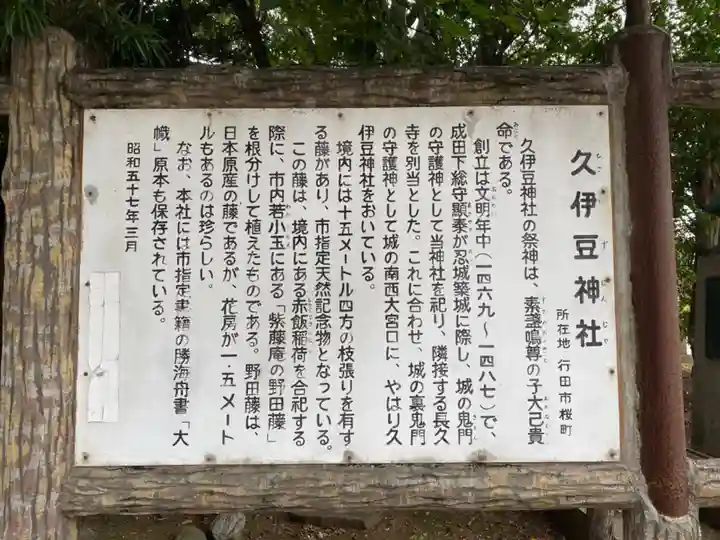 久伊豆神社
所在地 行田市桜町
久伊豆神社の祭神は、素盞嗚尊の子大己貴
命である。
創立は文明年中(一四六九~一四八七)で、
成田下総守顕泰が忍城築城に際し、城の鬼門
の守護神として当神社を祀り、隣接する長久
寺を別当とした。これに合わせ、城の裏鬼門
の守護神として城の南西大宮口に、やはり久
伊豆神社をおいている。
境内には十五メートル四方の枝張りを有す
る藤があり、市指定天然記念物となっている。
この藤は、境内にある赤飯稲荷を合祀する
際に、市内若小玉にある「紫藤庵の野田藤」
を根分けして植えたものである。野田藤は、
日本原産の藤であるが、花房が一・五メート
ルもあるのは珍らしい。
なお、本社には市指定書籍の勝海舟書「大
幟」原本も保存されている。
昭和五十七年三月